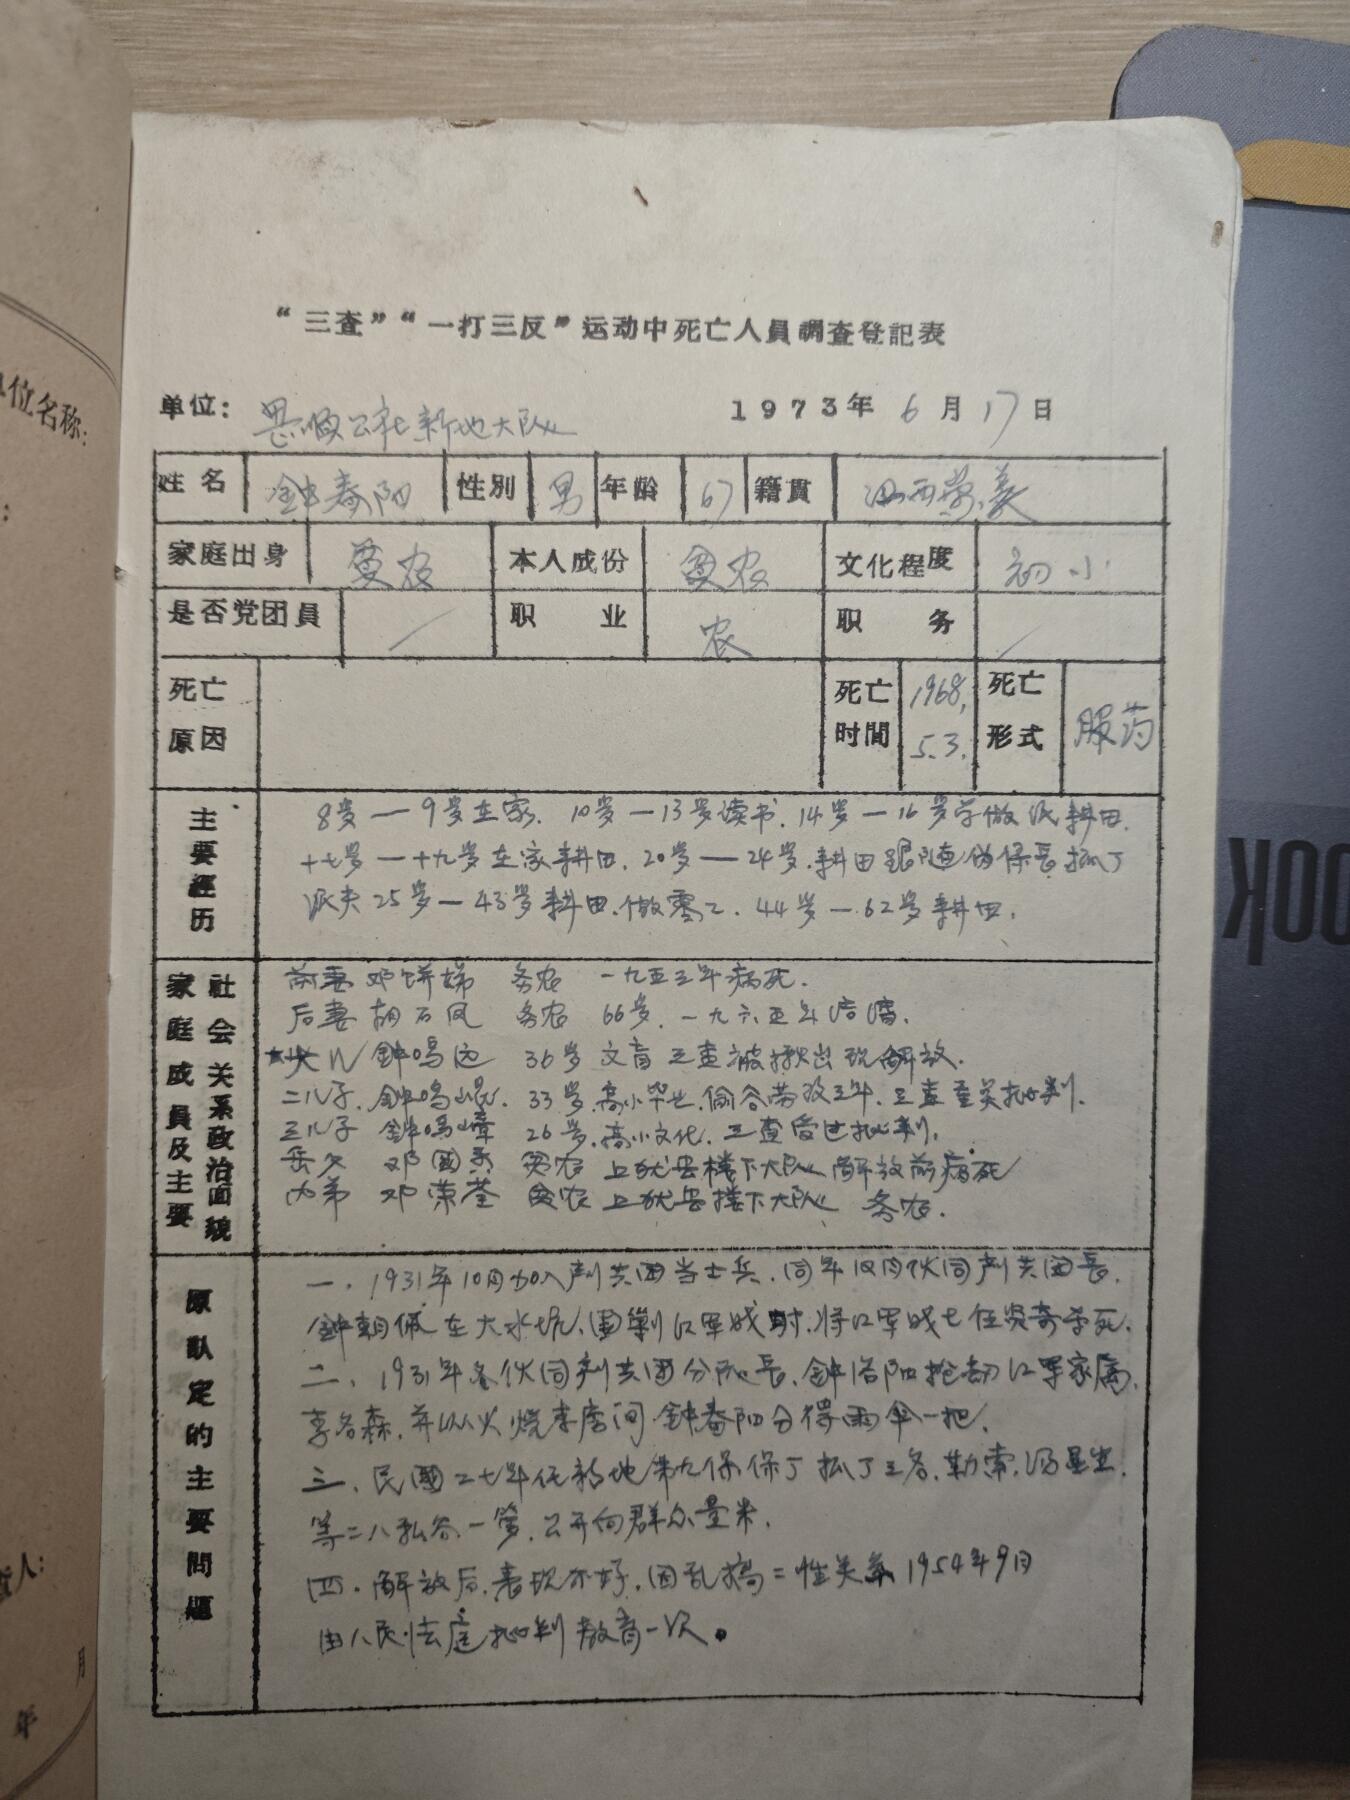 单位名称:
:
查人:
月
年
ook
“三查”“一打三反”运动中死亡人員調查登記表
单位: 思順公社新地大队 1973年6月17日
姓名 鈡春阳 性別 男 年龄 67 籍貫 江西崇义
家庭出身 貧农 本人成份 貧农 文化程度 初小
是否党团員 / 职业 农 职务 /
死亡原因 死亡时間 1968.5.3. 死亡形式 服药
主要經历
8岁—9岁在家. 10岁—13岁读书. 14岁—16岁学做泥耕田.
十七岁—十九岁在家耕田. 20岁—24岁.耕田跟随伪保長抓丁
派夫25岁—43岁耕田.做零工. 44岁—62岁耕田.
家庭成員及主要社会关系政治面貌
前妻 邓饼娣 务农 一九五三年病死.
后妻 胡石凤 务农 66岁. 一九六五年
大儿 鈡鸣 36岁 文盲 三查被揪出现解放.
二儿子. 鈡鸣崐. 33岁.高小毕业.偷谷劳改三年.三查重点批判.
三儿子 鈡鸣嶂 26岁.高小文化.三查受过批判.
岳父 邓國 貧农 上犹县楼下大队 解放前病死
内弟 邓荣荃 貧农 上犹县楼下大队 务农.
原臥定的主要問題
一. 1931年10月加入剷共团当士兵.同年 月伙同剷共团長.
鈡朝佩在大水坑.围剿红军战时.将红军战士任贤奇杀死.
二. 1931年冬伙同剷共团分队長.鈡洛阳抢劫红军家属.
李名森.并以火烧李房间.鈡春阳分得雨伞一把.
三. 民國二七年任新地第九保保丁抓丁三名.勒索.汤
等二人私谷一箩.公开向群众量米.
四. 解放后.表现不好.因乱搞=性关系1954年9月
由人民法庭批判教育一次.